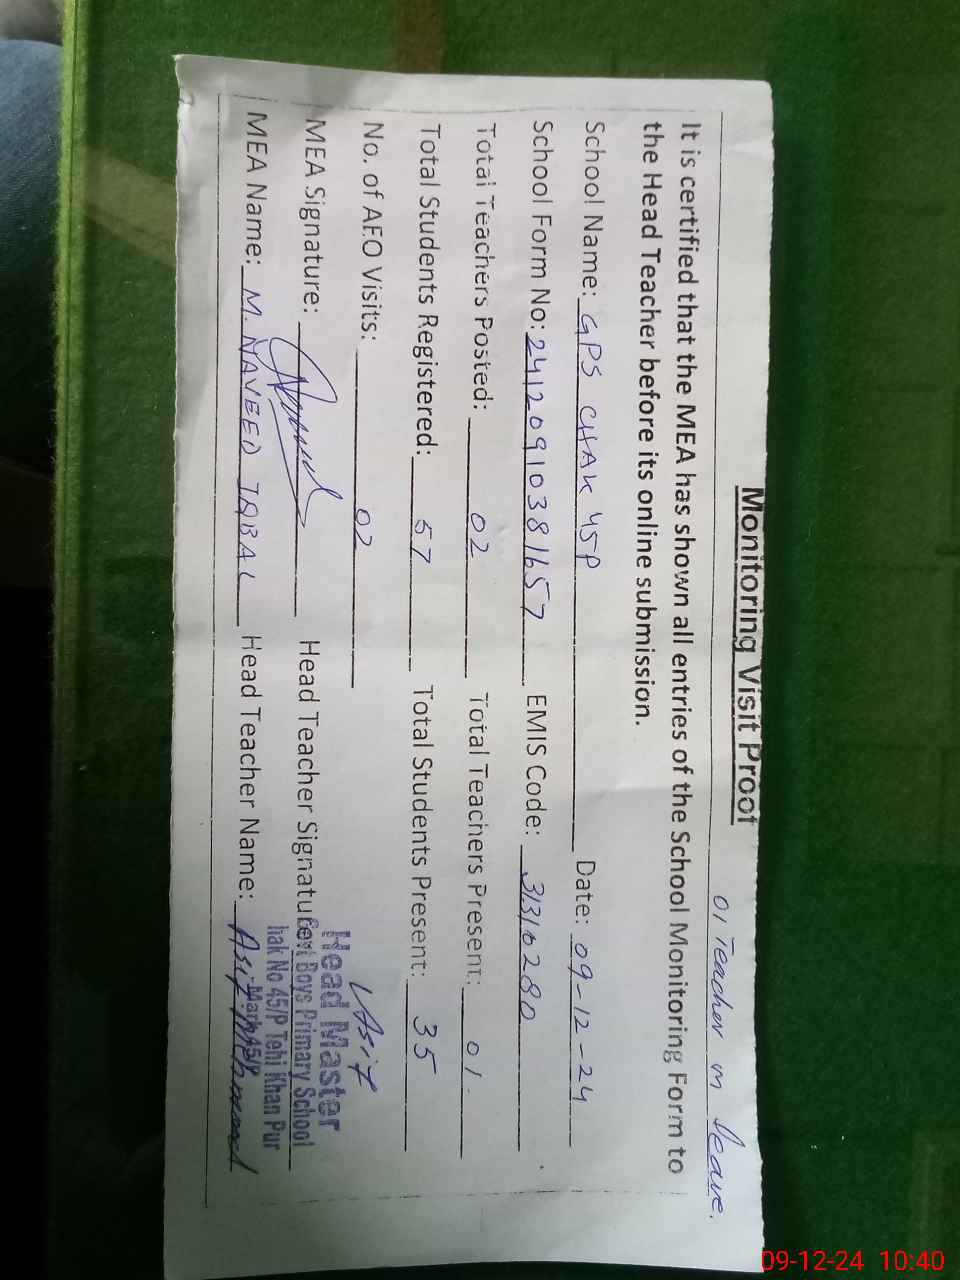 Monitoring Visit Proof
01 Teacher on Leave.
It is certified that the MEA has shown all entries of the School Monitoring Form to
the Head Teacher before its online submission.
School Name: GPS CHAK 45P Date: 09-12-24
School Form No: 2412091038 1657 EMIS Code: 31310280
Total Teachers Posted: 02 Total Teachers Present: 01.
Total Students Registered: 57 Total Students Present: 35
No. of AEO Visits: 02
MEA Signature: Head Teacher Signature Asif
Head Master
Govt Boys Primary School
hak No 45/P Tehi Khan Pur
MEA Name: M. NAVEED IQBAL Head Teacher Name: Asif Mehmood
09-12-24 10:40